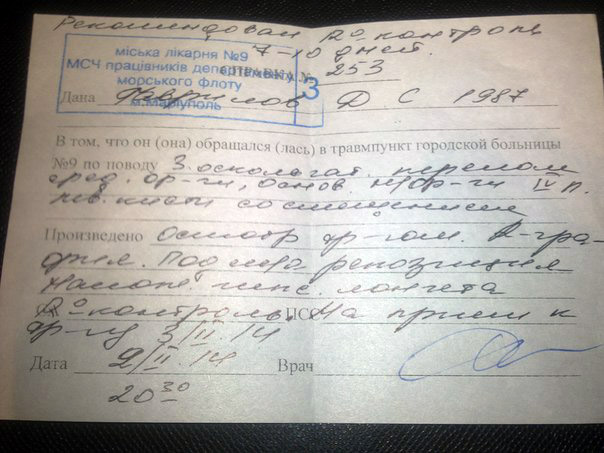 Рекомендован Rº контроль
7-10 дней.
міська лікарня №9
МСЧ працівників департаменту
морського флоту
м.Маріуполь
3
СПРАВКА № 253
Дана Д С 1987
В том, что он (она) обращался (лась) в травмпункт городской больницы
№9 по поводу З. оскольчат. перелом
сред. ф-ги, основ. н/ф-ги IV п.
лев. кисти со смещением
Произведено Осмотр R-гра-
фия. Под м/а репозиция
гипс. лонгета
Rº-контроль. На прием к
3/II 14
Дата 2/II 14 Врач
20 30